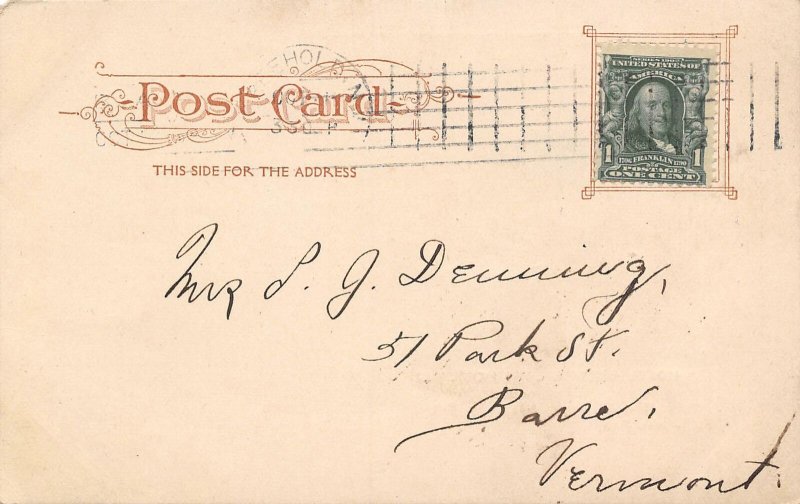 Post Card
THIS SIDE FOR THE ADDRESS
SERIES 1902
UNITED STATES OF
AMERICA
1706 FRANKLIN 1790
1 POSTAGE 1
ONE CENT
S. J. Denning,
51 Park St.
Barre,
Vermont.